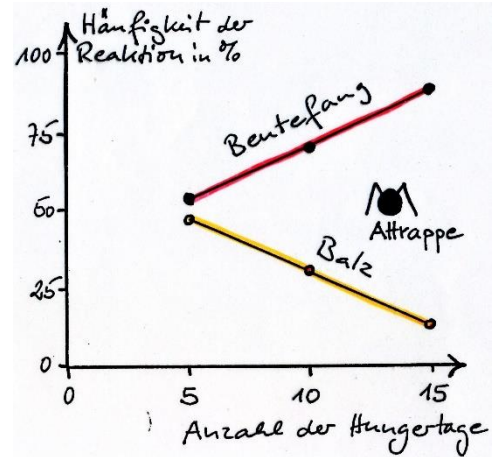 Häufigkeit der
Reaktion in %
100
75
50
25
0
Beutefang
Attrappe
Balz
0 5 10 15
Anzahl der Hungertage